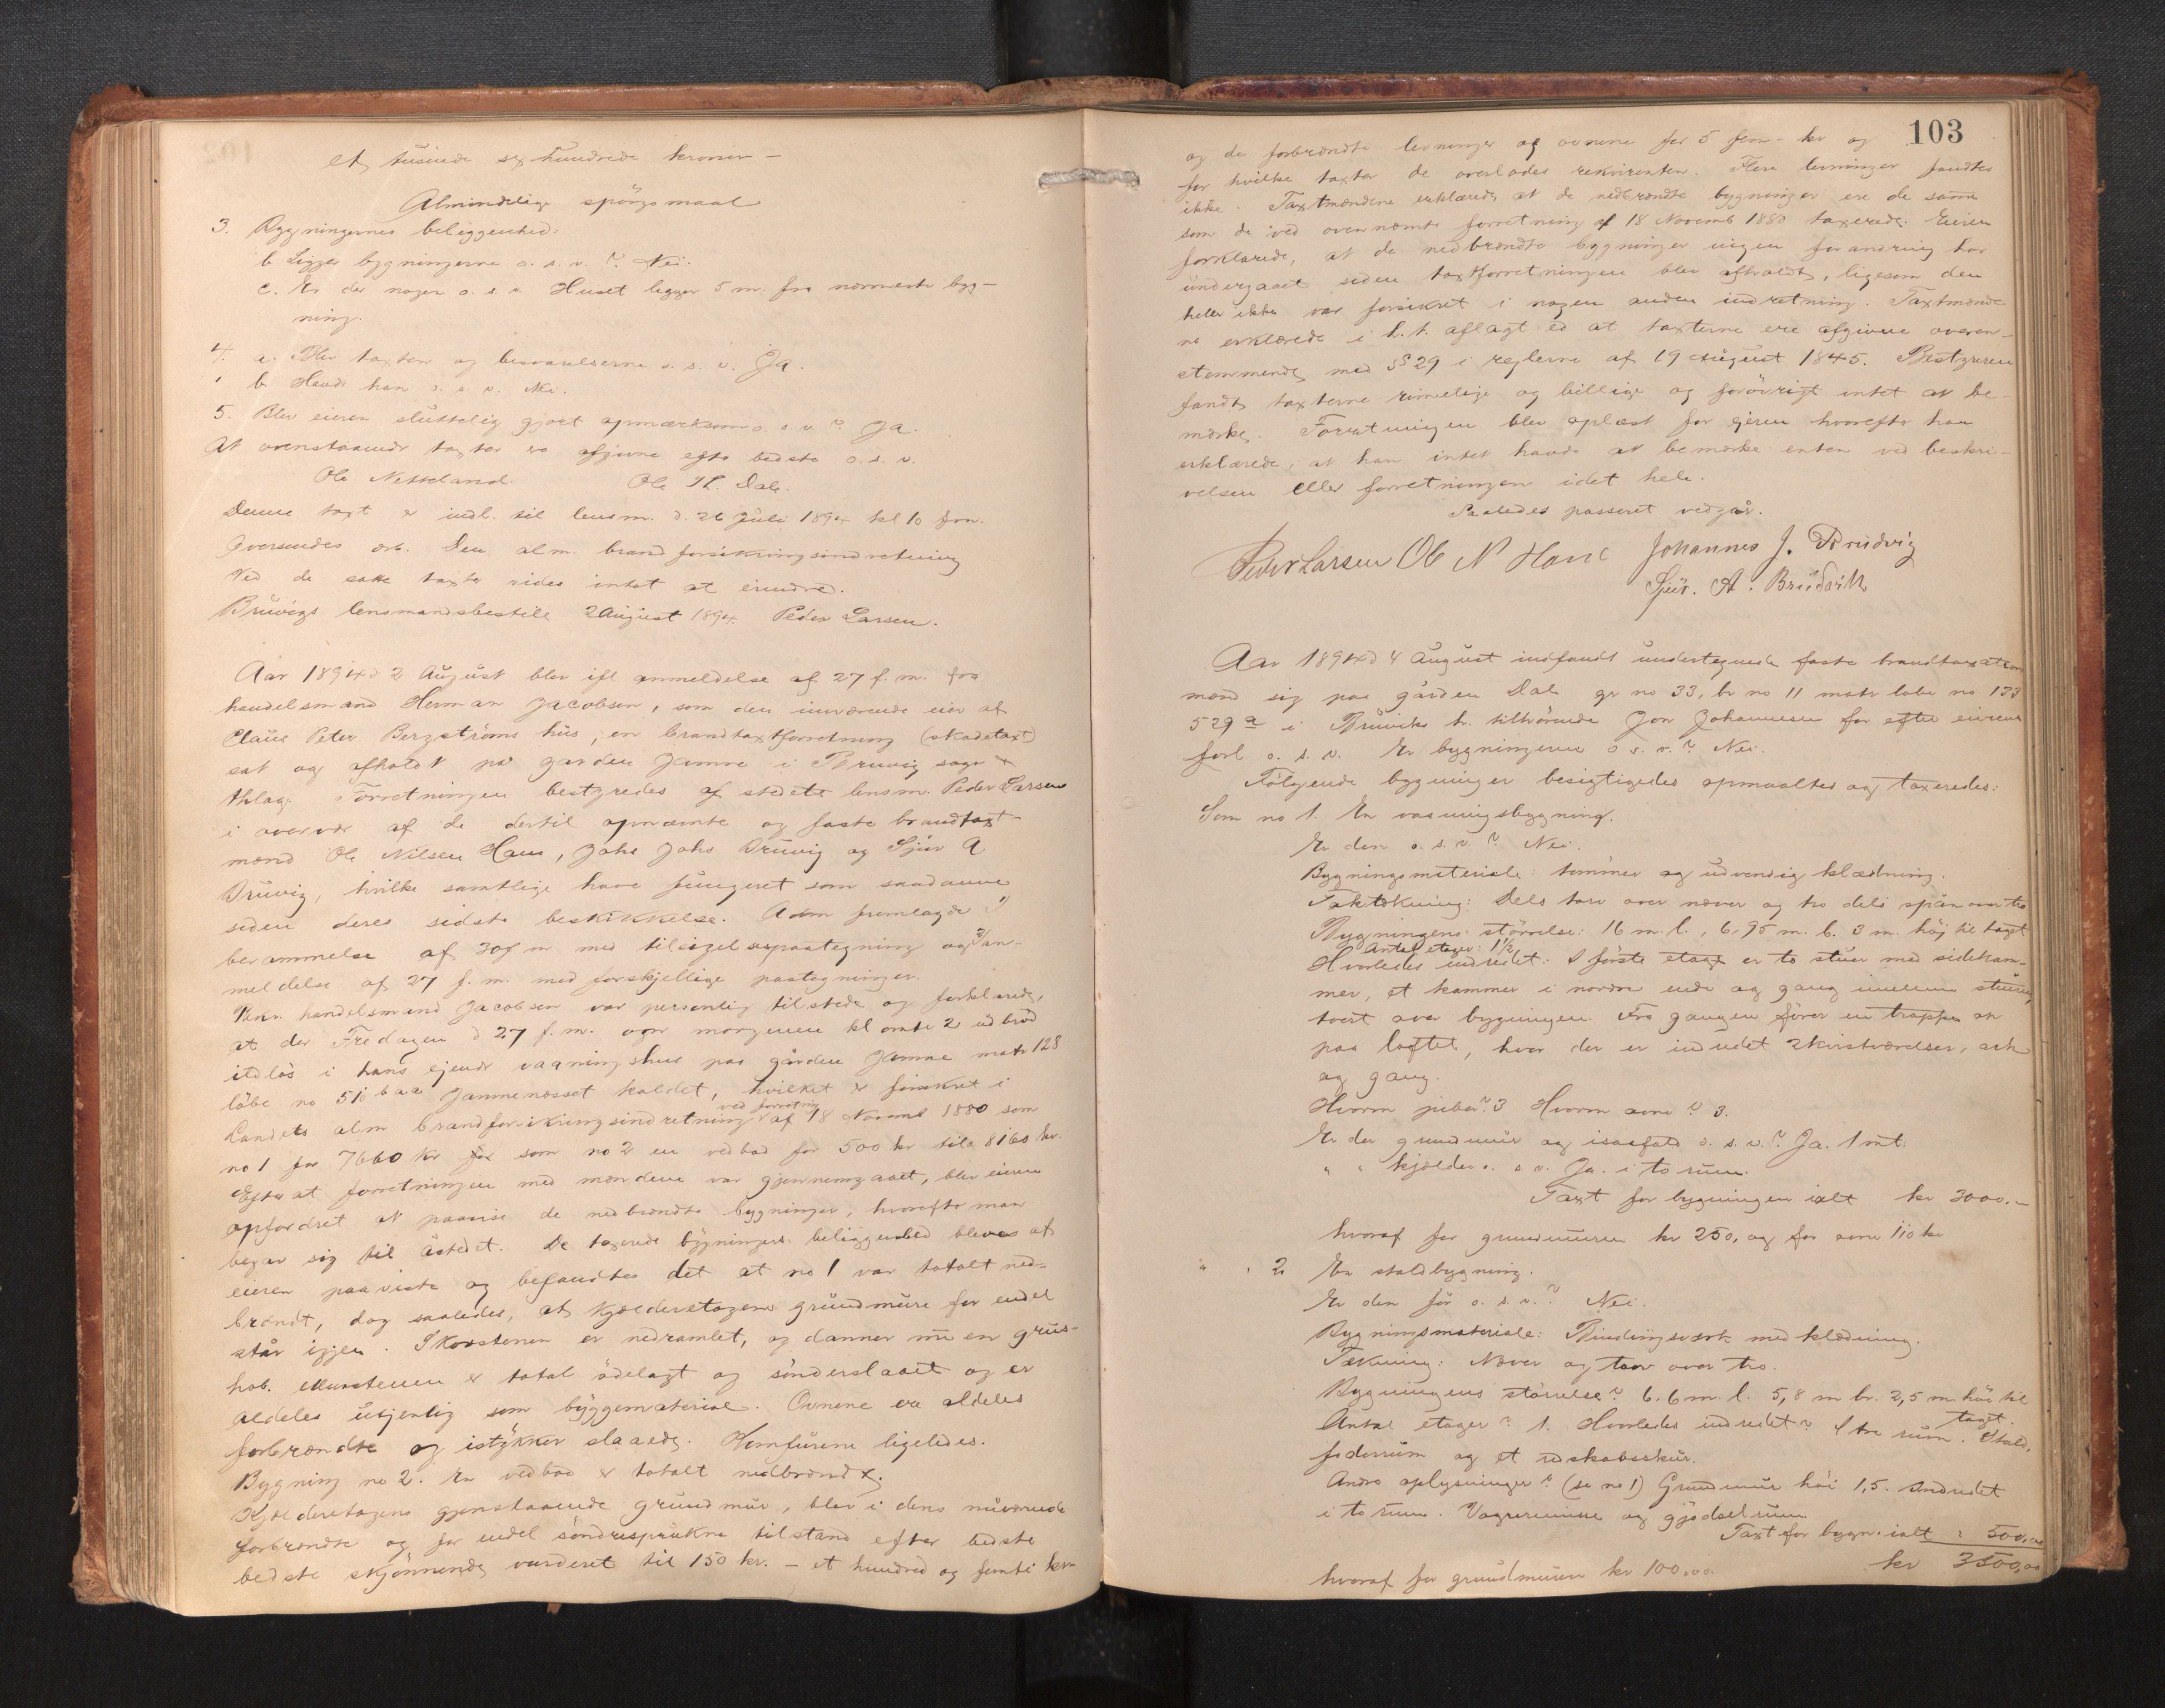 et tusinde sexhundrede kroner —
Almindelige spörgsmaal
3. Bygningernes beliggenhed:
b Ligger bygningerne o. s. v.? Nei.
c. Er der nogen o. s. v. Huset ligger 5 m. fra nærmeste byg-
ning.
4. a. Blev taxten og besvarelserne o. s. v. Ja.
b Havde han o. s. v. Nei.
5. Blev eieren sluttelig gjort opmærksom o. s. v.? Ja.
At ovenstaaende taxter er afgivne efter bedste o. s. v.
Ole Nesteland. Ole N. Dale.
Denne taxt er indl. til lensm. d. 26 Juli 1894 kl 10 fm.
Oversendes ærb. Den alm. brandforsikringsindretning
Ved de satte taxter vides intet at erindre.
Bruvigs lensmandsbestill 2 August 1894. Peder Larsen.
Aar 1894 d 2 August blev ifl anmeldelse af 27 f. m. fra
handelsmand Herman Jacobsen, som den nuværende eier af
Claus Peter Bergströms hus, en brandtaxtforretning (skadetaxt)
sat og afholdt på gården Jamne i Bruvig sogn &
thlag. Forretningen bestyredes af stedets lensm. Peder Larsen
i overvær af de dertil opnævnte og faste brandtaxt-
mænd Ole Nilsen Haus, Johs Johs Bruvig og Sjur A
Bruvig, hvilke samtlige have fungeret som saadanne
siden deres sidste beskikkelse. Adm fremlagde 1)
berammelse af 30 f m med tilsigelsespaategning og 2) an-
meldelse af 27 f. m. med forskjellige paategninger.
Rekv. handelsmand Jacobsen var personlig tilstede og forklarede,
at der Fredagen d 27 f. m. om morgenen kl omtr 2 udbröd
ildlös i hans eiende vaaningshus paa gården Jamne matr 128
löbe no 516 baa Jamnenesset kaldet, hvilket er forsikret i
Landets alm brandforsikringsindretning ved forretning af 18 Novemb 1880 som
no 1 for 7660 kr for som no 2 en vedbod for 500 kr tils 8160 kr.
Efter at forretningen med mændene var gjennemgaaet, blev eieren
opfordret at paavise de nedbrændte bygninger, hvorefter man
begav sig til åstedet. De taxerede bygningers beliggenhed bleve af
eieren paaviste og befandtes det at no 1 var totalt ned-
brændt, dog saaledes, at kjælderetagens grundmure for endel
står igjen. Skorstenen er nedramlet, og danner nu en grus-
hob. Murstenen er total ödelagt og sönderslaaet og er
aldeles utjenlig som byggematerial. Ovnene ere aldeles
forbrændte og istykker slaaede. Komfurene ligeledes.
Bygning no 2. En vedbod er totalt nedbrændt.
Kjælderetagens gjenstaaende grundmur, blev i dens nuværende
forbrændte og for endel söndersprukne tilstand efter bedste
bedste skjönnende vurderet til 150 kr. — et hundred og femti kr
103
og de forbrændte levninger af ovnene for 5 fem - kr og
for hvilke taxter de overlades rekvirenten. Flere levninger fandtes
ikke. Taxtmændene erklærede at de nedbrændte bygninger ere de samme
som de ved ovennævnte forretning af 18 Novemb 1880 taxerede. Eieren
forklarede, at de nedbrændte bygninger ingen forandring har
undergaaet siden taxtforretningen blev afholdt, ligesom den
heller ikke var forsikret i nogen anden indretning. Taxtmænde
ne erklærede i h. t. aflagt ed at taxterne ere afgivne overen-
stemmende med § 29 i reglerne af 19 August 1845. Bestyreren
fandt taxterne rimelige og billige og forövrigt intet at be-
mærke. Forretningen blev oplæst for eieren hvorefter han
erklærede, at han intet havde at bemærke enten ved beskri-
velsen eller forretningen idet hele.
Saaledes passeret vedgår.
Peder Larsen Ole N Haus Johannes J. Bruvig
Sjur. A. Bruvik
Aar 1894 d 4 August indfandt undertegnede faste brandtaxations
mænd sig paa gården Dale gr no 33, br no 11 matr löbe no 133
529 a i Bruviks hr. tilhörende Jon Johannesen for efter eierens
forl o. s. v. Er bygningerne o s. v.? Nei.
Fölgende bygninger besigtigedes opmaaltes og taxeredes:
Som no 1. En vaaningsbygning.
Er den o. s. v.? Nei.
Bygningsmateriale: tömmer og udvendig klædning.
Taktækning: Dels torv over næver og tro dels spån over tro
Bygningens störrelse: 16 m. l., 6,95 m. b. 3 m. höj til taget
Antal etager: 1½
Hvorledes indredet: I förste etage er to stuer med sidekam-
mer, et kammer i nordre ende og gang imellem stuerne,
tvert over bygningen. Fra gangen förer en trappe op
paa loftet, hvor der er indredet 2 kvistværelser, ark
og gang.
Hvorm piber? 3 Hvorm ovne? 3.
Er der grundmur og isaafald o. s. v.? Ja. 1 mt.
" " kjælder o. s v. Ja. i to rum.
Taxt for bygningen ialt kr 3000.-
hvoraf for grundmuren kr 250, og for ovne 110 kr
" " 2 En staldbygning.
Er den för o. s. v.? Nei.
Bygningsmateriale: Bindingsværk med klædning.
Tækning: Næver og torv over tro.
Bygningens störrelse? 6.6 m. l. 5,8 m br. 2,5 m. höi til
taget.
Antal etager? 1. Hvorledes indredet? I tre rum. Stald,
foderrum og et redskabsskur.
Andre oplysninger? (se no 1) Grundmur höi 1,5. Indredet
i to rum. Vognremisse og gjödselrum.
Taxt for bygn. ialt " 500,00
kr 3500,00
hvoraf for grundmuren kr 100,00.